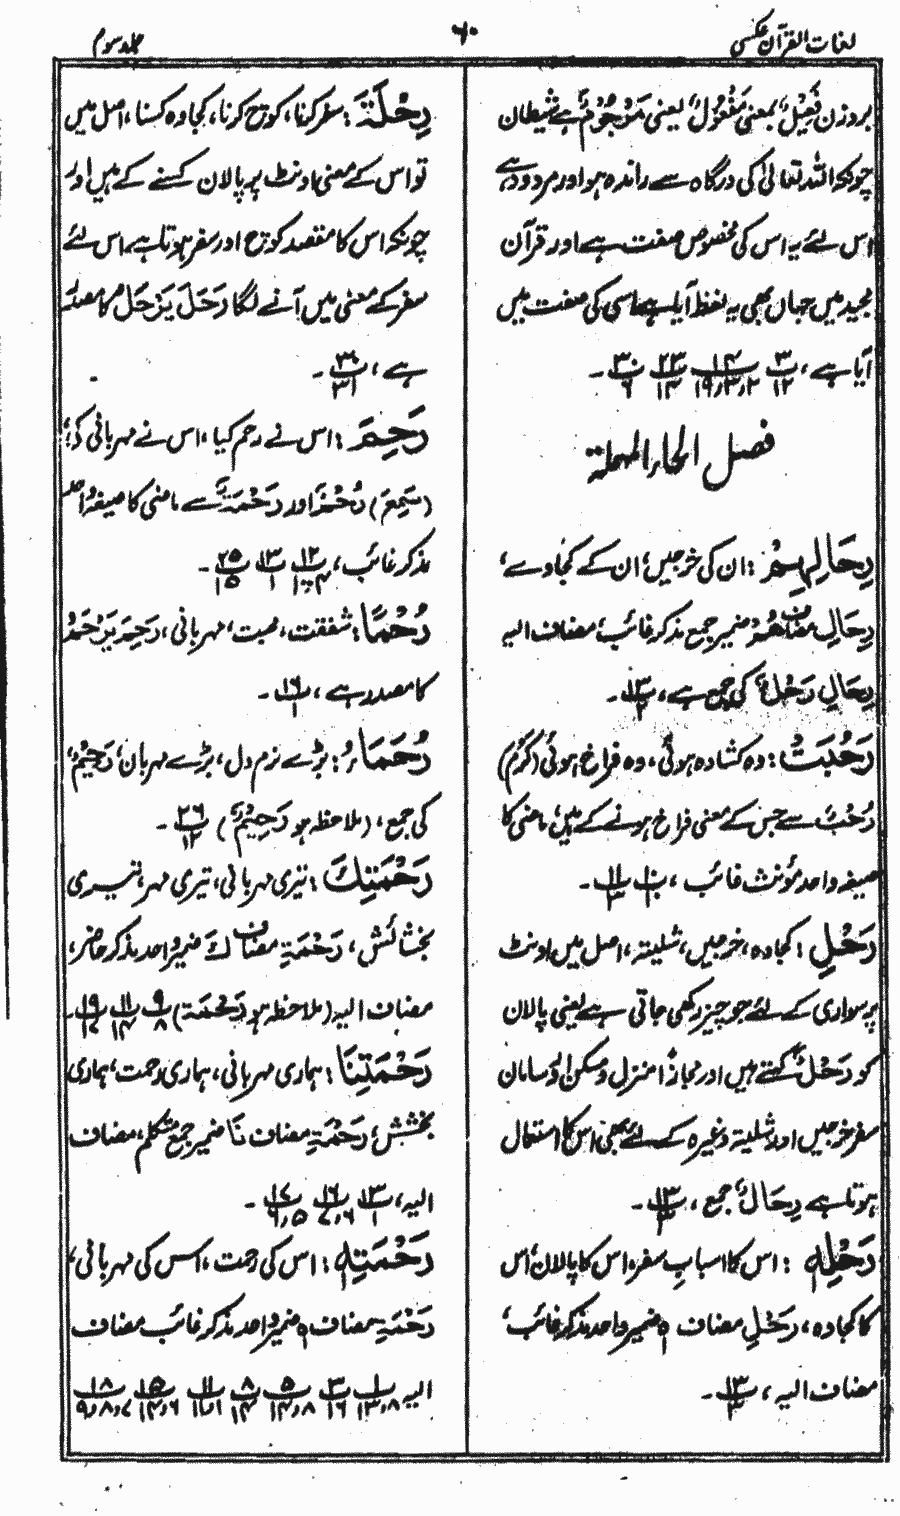 لغات القرآن عکسی
۶۰
جلد سوم
بروزن فَعِیْلٌ بمعنی مَفْعُوْلٌ یعنی مَرْجُوْمٌ ہے شیطان
چونکہ اللہ تعالیٰ کی درگاہ سے راندہ ہوا اور مردود ہے
اس لئے یہ اس کی مخصوص صفت ہے اور قرآن
مجید میں جہاں بھی یہ لفظ آیا ہے اسی کی صفت میں
آیا ہے،
فصل الحاء المهملة
رِحَالِهِمْ : ان کی خرجیں، ان کے کجاوے،
رِحَالِ مضاف هُمْ ضمیر جمع مذکر غائب، مضاف الیہ
رِحَالِ رَحْلٌ کی جمع ہے،
رَحُبَتْ : وہ کشادہ ہوئی، وہ فراخ ہوئی (كَرُمَ)
رُحْبٌ سے جس کے معنی فراخ ہونے کے ہیں، ماضی کا
صیغہ واحد مؤنث غائب،
رَحْلِ : کجاوہ، خرجیں، شلیتہ، اصل میں اونٹ
پر سواری کے لئے جو چیز رکھی جاتی ہے یعنی پالان
کو رَحْلٌ کہتے ہیں اور مجازًا منزل و مسکن اور سامان
سفر خرجیں اور شلیتہ وغیرہ کے لئے بھی اس کا استعمال
ہوتا ہے رِحَالٌ جمع،
رَحْلِهٖ : اس کا اسباب سفر، اس کا پالان، اس
کا کجاوہ، رَحْلِ مضاف ہ ضمیر واحد مذکر غائب،
مضاف الیہ،
رِحْلَةَ : سفر کرنا، کوچ کرنا، کجاوہ کسنا، اصل میں
تو اس کے معنی اونٹ پر پالان کسنے کے ہیں اور
چونکہ اس کا مقصد کوچ اور سفر ہوتا ہے اس لئے
سفر کے معنی میں آنے لگا رَحَلَ یَرْحَلُ کا مصدر
ہے،
رَحِمَ : اس نے رحم کیا، اس نے مہربانی کی،
(سَمِعَ) رُحْمٌ اور رَحْمَةٌ سے ماضی کا صیغہ واحد
مذکر غائب،
رُحْمًا : شفقت، محبت، مہربانی، رَحِمَ یَرْحَمُ
کا مصدر ہے،
رُحَمَاءُ : بڑے نرم دل، بڑے مہربان، رَحِیْمٌ
کی جمع، (ملاحظہ ہو رَحِیْمٌ)
رَحْمَتِكَ : تیری مہربانی، تیری مہر، تیری
بخشائش، رَحْمَةِ مضاف كَ ضمیر واحد مذکر حاضر،
مضاف الیہ (ملاحظہ ہو رَحْمَة)
رَحْمَتِنَا : ہماری مہربانی، ہماری رحمت، ہماری
بخشش، رَحْمَةِ مضاف نَا ضمیر جمع متکلم، مضاف
الیہ،
رَحْمَتِهٖ : اس کی رحمت، اس کی مہربانی،
رَحْمَةِ مضاف ہ ضمیر واحد مذکر غائب مضاف
الیہ